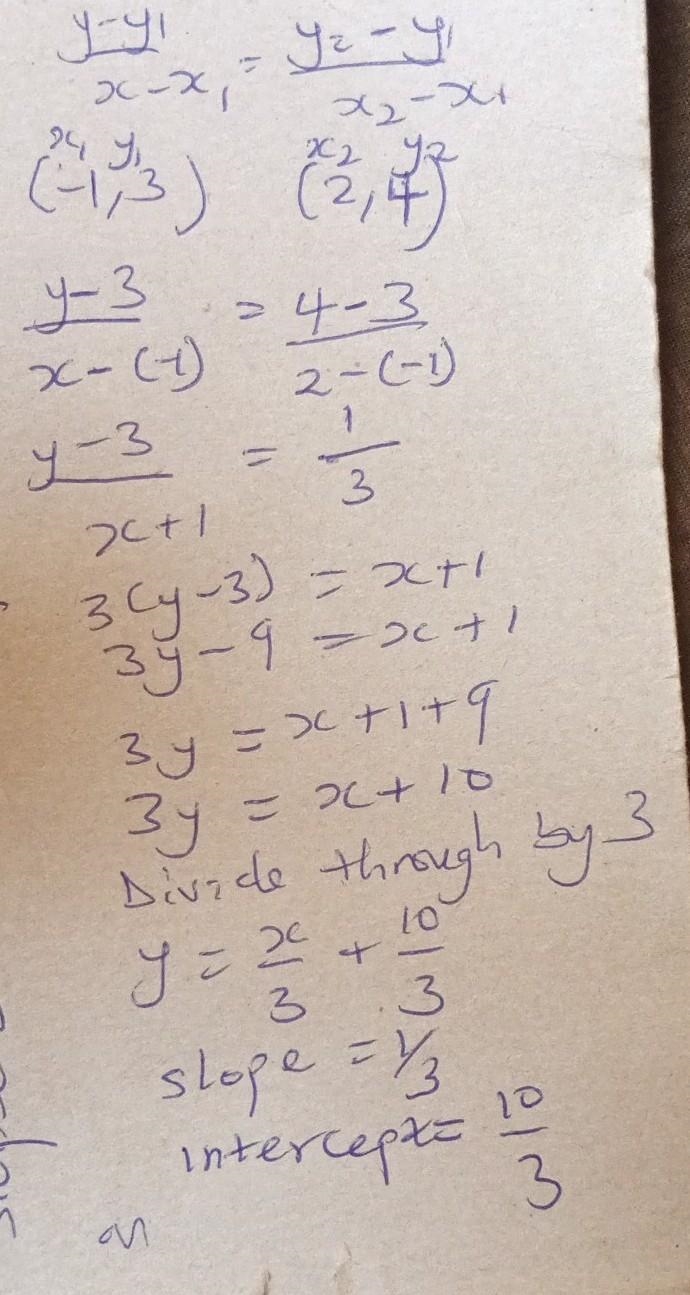 y-y₁ / x-x₁ = y₂-y₁ / x₂-x₁
x₁ y₁ x₂ y₂
(-1,3) (2,4)
y-3 / x-(-1) = 4-3 / 2-(-1)
y-3 / x+1 = 1/3
3(y-3) = x+1
3y-9 = x+1
3y = x+1+9
3y = x+10
Divide through by 3
y = x/3 + 10/3
slope = 1/3
intercept = 10/3